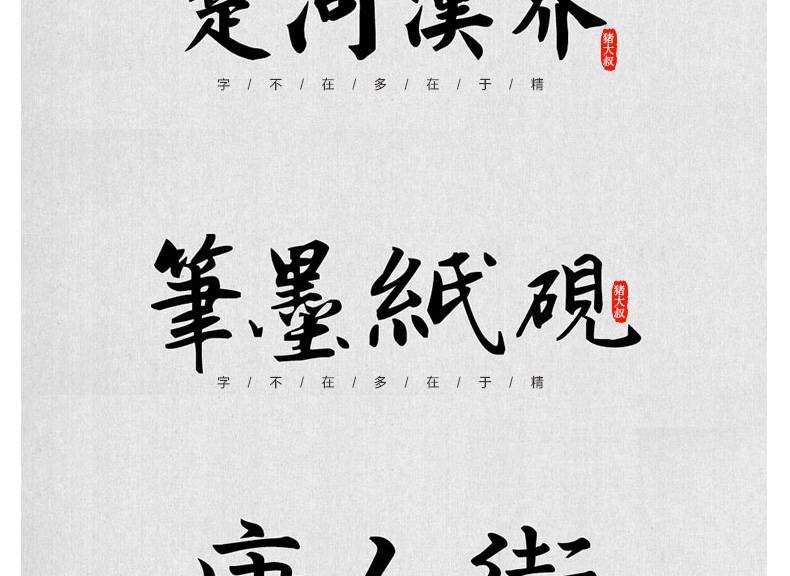 楚河漢界
猪大叔
字/不/在/多/在/于/精
筆墨紙硯
猪大叔
字/不/在/多/在/于/精
唐人街